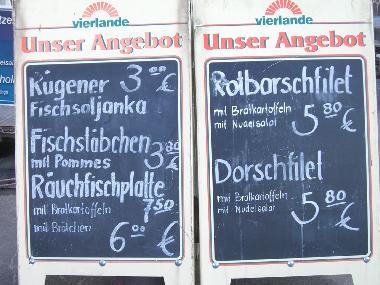 vierlande
Unser Angebot
Rügener 3⁰⁰ €
Fischsoljanka
Fischstäbchen
mit Pommes 3⁸⁰ €
Räuchfischplatte
mit Bratkartoffeln 7⁵⁰
mit Brötchen 6⁰⁰ €
vierlande
vierlande
Unser Angebot
Rotbarschfilet
mit Bratkartoffeln
mit Nudelsalat 5⁸⁰ €
Dorschfilet
mit Bratkartoffeln
mit Nudelsalat 5⁸⁰ €
vierlande